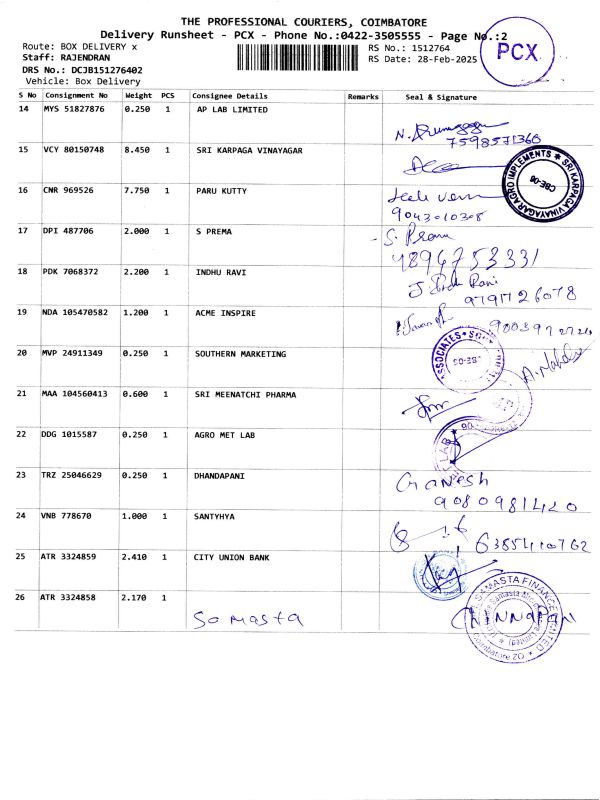 THE PROFESSIONAL COURIERS, COIMBATORE
Delivery Runsheet - PCX - Phone No.:0422-3505555 - Page No.:2
Route: BOX DELIVERY x
RS No.: 1512764
PCX
Staff: RAJENDRAN
RS Date: 28-Feb-2025
DRS No.: DCJB151276402
Vehicle: Box Delivery
S No Consignment No Weight PCS Consignee Details Remarks Seal & Signature
14 MYS 51827876 0.250 1 AP LAB LIMITED
7598571360
15 VCY 80150748 8.450 1 SRI KARPAGA VINAYAGAR
SRI KARPAGA VINAYAGAR AGRO IMPLEMENTS
CBE-06
16 CNR 969526 7.750 1 PARU KUTTY
9043010308
17 DPI 487706 2.000 1 S PREMA
S. Prema
4894753331
18 PDK 7068372 2.200 1 INDHU RAVI
Ravi
9791726078
19 NDA 105470582 1.200 1 ACME INSPIRE
20 MVP 24911349 0.250 1 SOUTHERN MARKETING
ASSOCIATES
21 MAA 104560413 0.600 1 SRI MEENATCHI PHARMA
22 DDG 1015587 0.250 1 AGRO MET LAB
LAB
23 TRZ 25046629 0.250 1 DHANDAPANI
Ganesh
9080981420
24 VNB 778670 1.000 1 SANTYHYA
6385410762
25 ATR 3324859 2.410 1 CITY UNION BANK
26 ATR 3324858 2.170 1
Samasta
SAMASTA FINANCE LIMITED
Coimbatore ZO